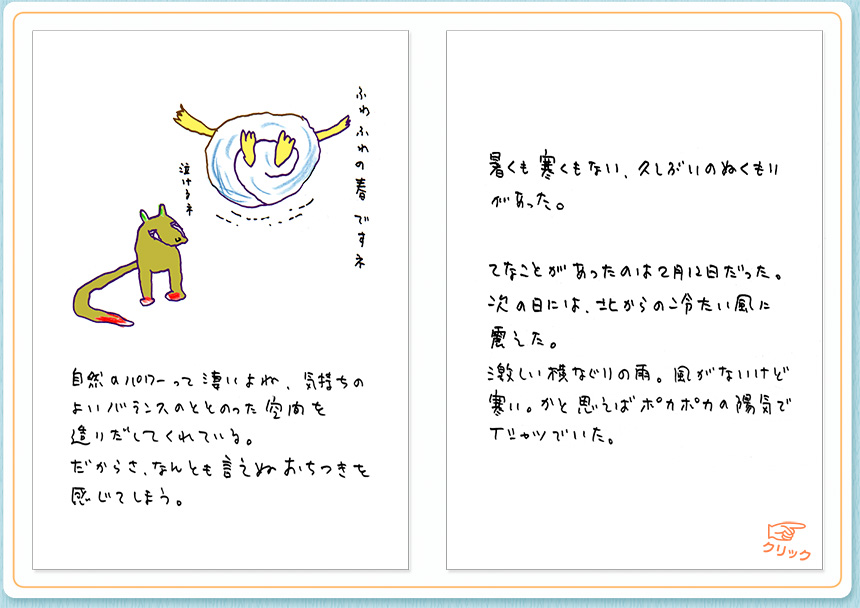 ふわふわの春ですネ
泣けるネ
自然のパワーって凄いよね、気持ちの
よいバランスのととのった空間を
造りだしてくれている。
だからさ、なんとも言えぬおちつきを
感じてしまう。
暑くも寒くもない、久しぶりのぬくもり
があった。
てなことがあったのは2月12日だった。
次の日には、北からの冷たい風に
震えた。
激しい横なぐりの雨。風がないけど
寒い。かと思えばポカポカの陽気で
Tシャツでいた。
クリック